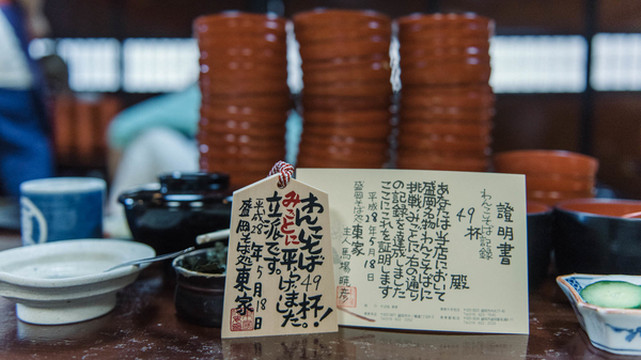 わんこそば49杯!
みごとに平らげました。
立派です。
平成28年5月18日
盛岡そば処 東家
證明書
わんこそば記録
49杯
殿
あなたは当店において
盛岡名物わんこそばに
挑戦みごとに右の通り
の記録を達成しました
ここにこれを証明します
平成28年5月18日
盛岡そば処 東家
主人 馬場暁彦